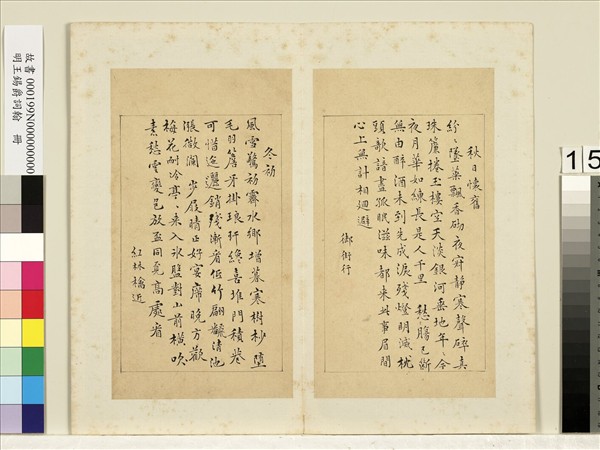 秋日懷舊
紛〻墜葉飄香砌夜寂靜寒聲碎真
珠簾捲玉樓空天淡銀河垂地年〻今
夜月華如練長是人千里 愁腸已斷
無由醉酒未到先成淚殘燈明滅枕
頭歌諳盡孤眠滋味都來此事眉間
心上無計相迴避
御街行
冬初
風雪驚初霽水鄉增暮寒樹杪墮
毛羽簷牙掛琅玕纔喜堆門積巷
可惜迤邐銷殘漸看低竹翩翻清池
漲微瀾 步屐晴正好宴席晚方歡
梅花耐冷亭〻來入冰盤對山前橫吹
素愁雲變色放盃同覓高處看
紅林檎近
故書 000199N000000000
明王錫爵詞翰 冊
15